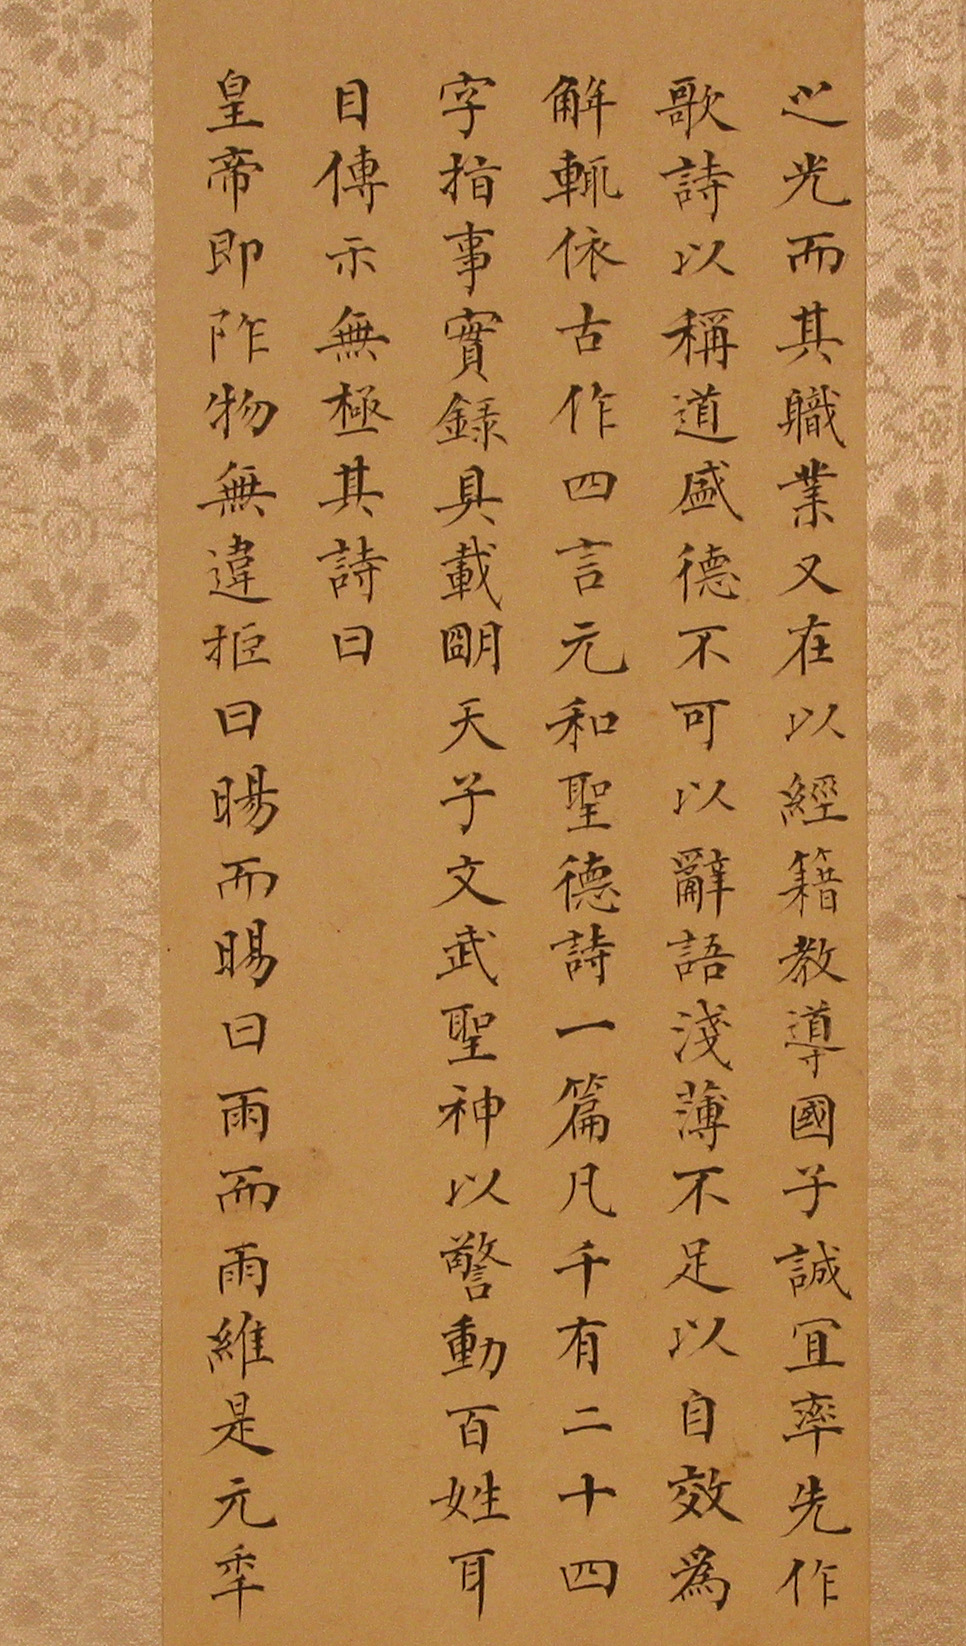 之光而其職業又在以經籍教導國子誠宜率先作
歌詩以稱道盛德不可以辭語淺薄不足以自效為
解輒依古作四言元和聖德詩一篇凡千有二十四
字指事實錄具載明天子文武聖神以警動百姓耳
目傳示無極其詩曰
皇帝即阼物無違拒曰暘而暘曰雨而雨維是元年